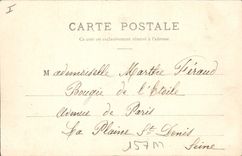 I
CARTE POSTALE
Ce côté est exclusivement réservé à l'adresse
Mademoiselle Marthe Féraud
Bougie de l'Etoile
Avenue de Paris
La Plaine St Denis
Seine
157M